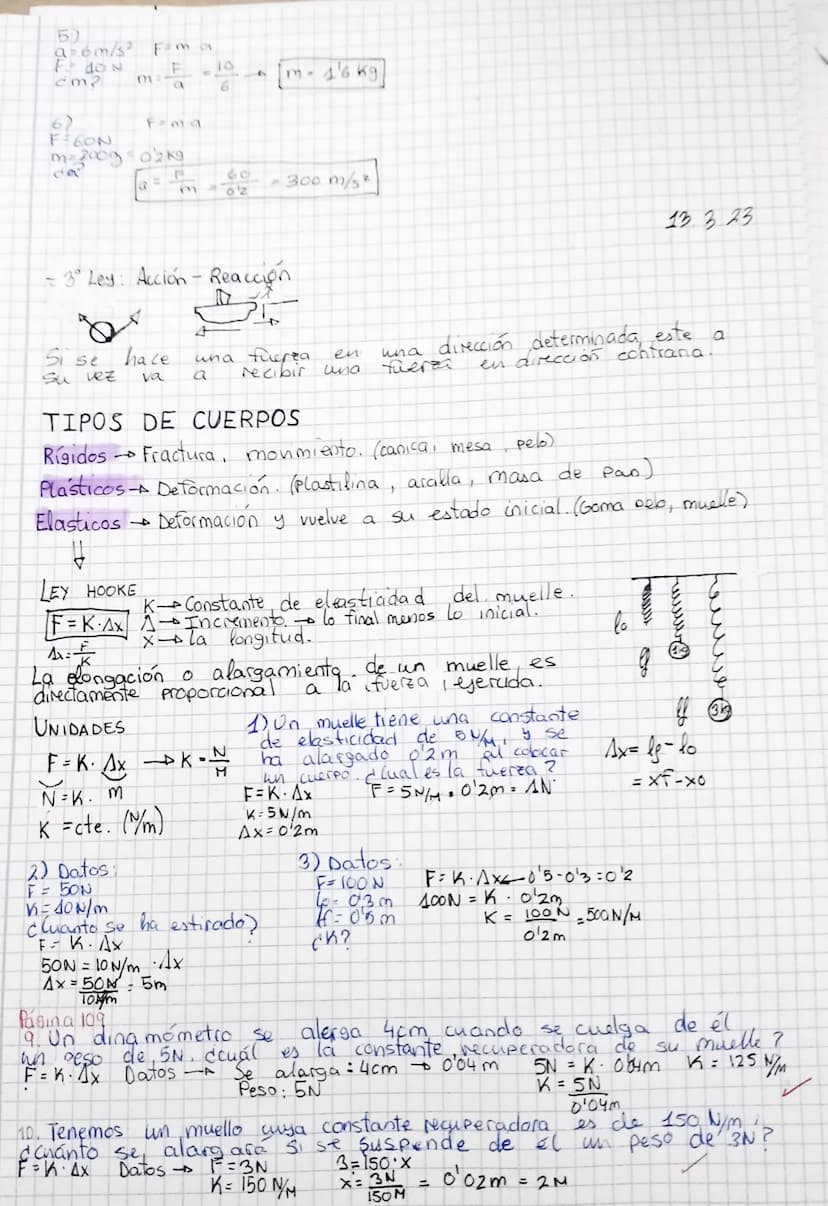 5)
a = 6 m/s² F = m a
F = 10 N
¿m? m = F/a = 10/6 → m = 1'6 Kg
6) F = m a
F = 60N
m = 200g = 0'2 Kg
¿a? a = F/m = 60/0'2 = 300 m/s²
13 3 23
- 3ª Ley: Acción - Reacción
Si se hace una fuerza en una dirección determinada, este a
su vez va a recibir una fuerza en dirección contraria.
TIPOS DE CUERPOS
Rígidos → Fractura, movimiento. (canica, mesa, pelo)
Plásticos → Deformación. (plastilina, aralla, masa de pan)
Elasticos → Deformación y vuelve a su estado inicial. (Goma pelo, muelle)
LEY HOOKE
F = K · Δx
Δx = F/K
K → Constante de eleasticidad del muelle.
Δ → Incremento → lo final menos lo inicial.
X → la longitud.
La elongación o alargamiento de un muelle, es
directamente proporcional a la fuerza ejercida.
lo
lf
1kg
3kg
Δx = lf - lo
= xf - xo
UNIDADES
F = K · Δx → K = N/M
N = K · m
K = cte. (N/m)
1) Un muelle tiene una constante
de elasticidad de 5 N/M, y se
ha alargado 0'2 m al colocar
un cuerpo. ¿Cual es la fuerza?
F = K · Δx F = 5 N/M · 0'2m = 1N
K = 5 N/m
Δx = 0'2m
2) Datos:
F = 50N
K = 10 N/m
¿Cuanto se ha estirado?
F = K · Δx
50N = 10 N/m · Δx
Δx = 50N/10N/m = 5m
3) Datos:
F = 100 N
lo = 0'3 m
lf = 0'5 m
¿K?
F = K · Δx ← 0'5 - 0'3 = 0'2
100N = K · 0'2m
K = 100N/0'2m = 500 N/M
Página 109
9. Un dinamómetro se alarga 4cm cuando se cuelga de él
un peso de 5N. ¿cuál es la constante recuperadora de su muelle?
F = K · Δx Datos → Se alarga: 4cm → 0'04m 5N = K · 0'04m K = 125 N/M
Peso: 5N K = 5N/0'04m
10. Tenemos un muello cuya constante recuperadora es de 150 N/m;
¿cuánto se alargará si se suspende de él un peso de 3N?
F = K · Δx Datos → F = 3N 3 = 150 · x
K = 150 N/M x = 3N/150M = 0'02m = 2M